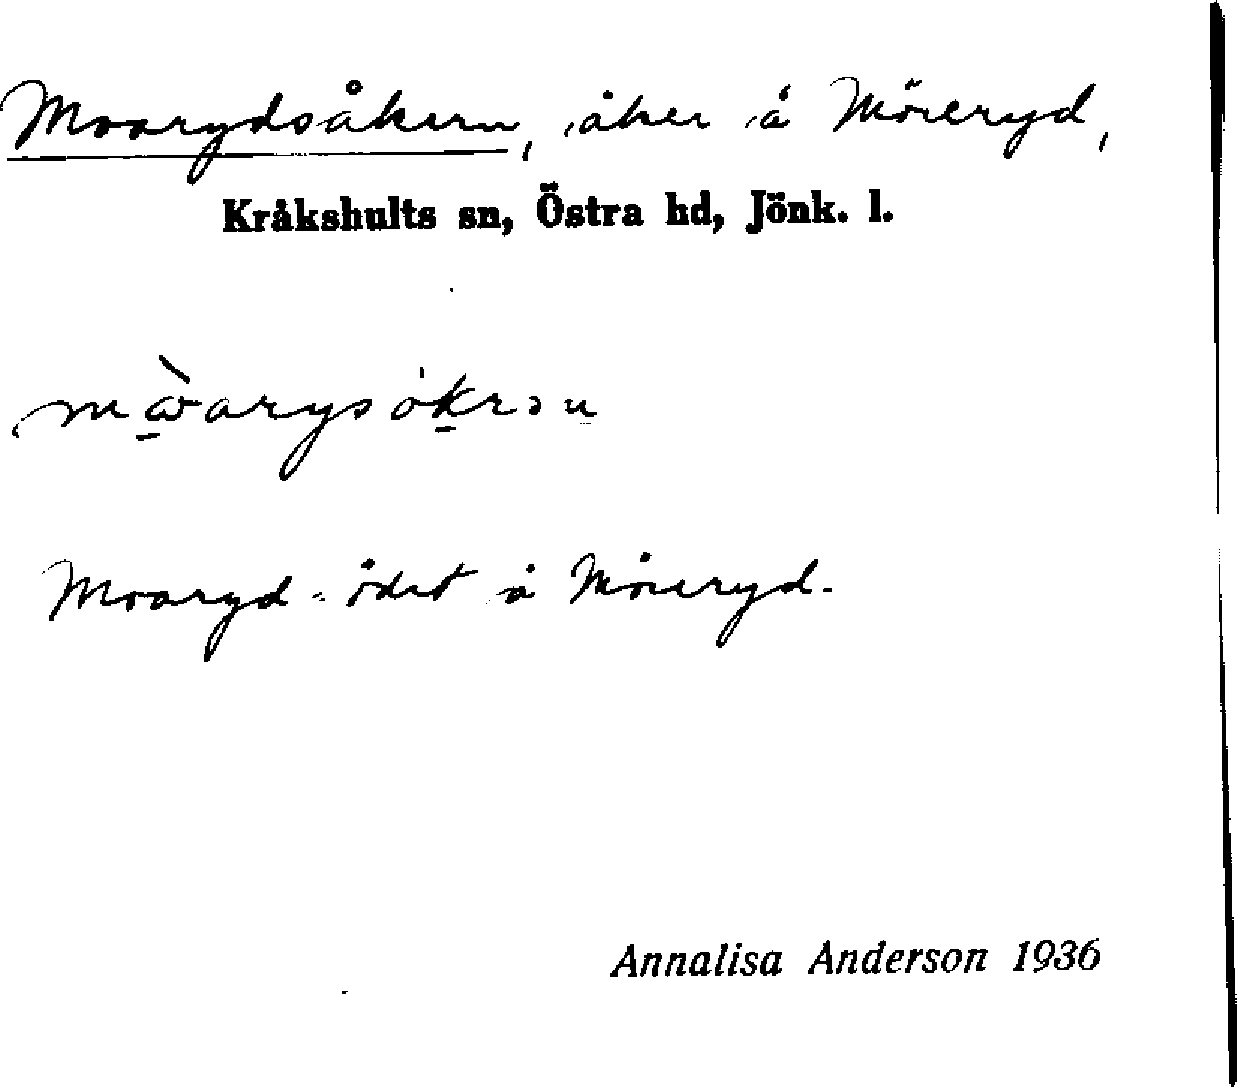 Moarydsåkern, åker å Möreryd,
Kråkshults sn, Östra hd, Jönk. l.
Moaryd - ödet å Möreryd.
Annalisa Anderson 1936